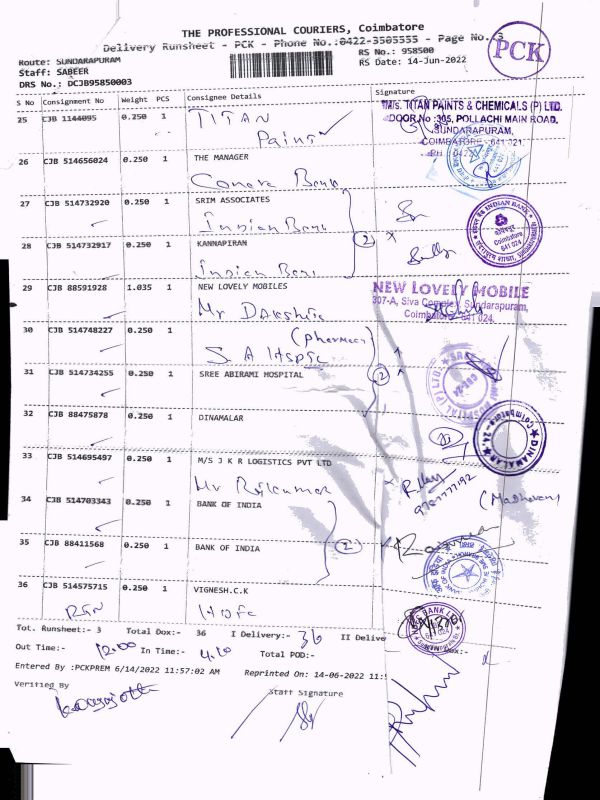 THE PROFESSIONAL COURIERS, Coimbatore
Delivery Runsheet - PCK - Phone No.:0422-3505555 - Page No.:3
PCK
Route: SUNDARAPURAM
RS No.: 958500
Staff: SABEER
RS Date: 14-Jun-2022
DRS No.: DCJB95850003
S No Consignment No Weight PCS Consignee Details Signature
25 CJB 1144095 0.250 1 TITAN
Paints
M/s. TITAN PAINTS & CHEMICALS (P) LTD.
DOOR No :305, POLLACHI MAIN ROAD,
SUNDARAPURAM,
COIMBATORE - 641 021.
26 CJB 514656024 0.250 1 THE MANAGER
Canara Bank
27 CJB 514732920 0.250 1 SRIM ASSOCIATES
Indian Bank
INDIAN BANK
Coimbatore
641 024
28 CJB 514732917 0.250 1 KANNAPIRAN
Indian Bank
2
29 CJB 88591928 1.035 1 NEW LOVELY MOBILES
Mr Dakshin
NEW LOVELY MOBILE
307-A, Siva Complex, Sundarapuram,
Coimbatore - 641 024.
30 CJB 514748227 0.250 1 (pharmacy)
S A Hsptl
31 CJB 514734255 0.250 1 SREE ABIRAMI HOSPITAL
2
32 CJB 88475878 0.250 1 DINAMALAR
DINAMALAR
Coimbatore - 24.
33 CJB 514695497 0.250 1 M/S J K R LOGISTICS PVT LTD
Mr Rajkumar
(Madhavan)
34 CJB 514703343 0.250 1 BANK OF INDIA
2
35 CJB 88411568 0.250 1 BANK OF INDIA
36 CJB 514575715 0.250 1 VIGNESH.C.K
RTN
HDFC
Tot. Runsheet:- 3 Total Dox:- 36 I Delivery:- 36 II Delive
Out Time:- 12.00 In Time:- 4.20 Total POD:-
Entered By :PCKPREM 6/14/2022 11:57:02 AM Reprinted On: 14-06-2022 11:5
Verified By
Staff Signature